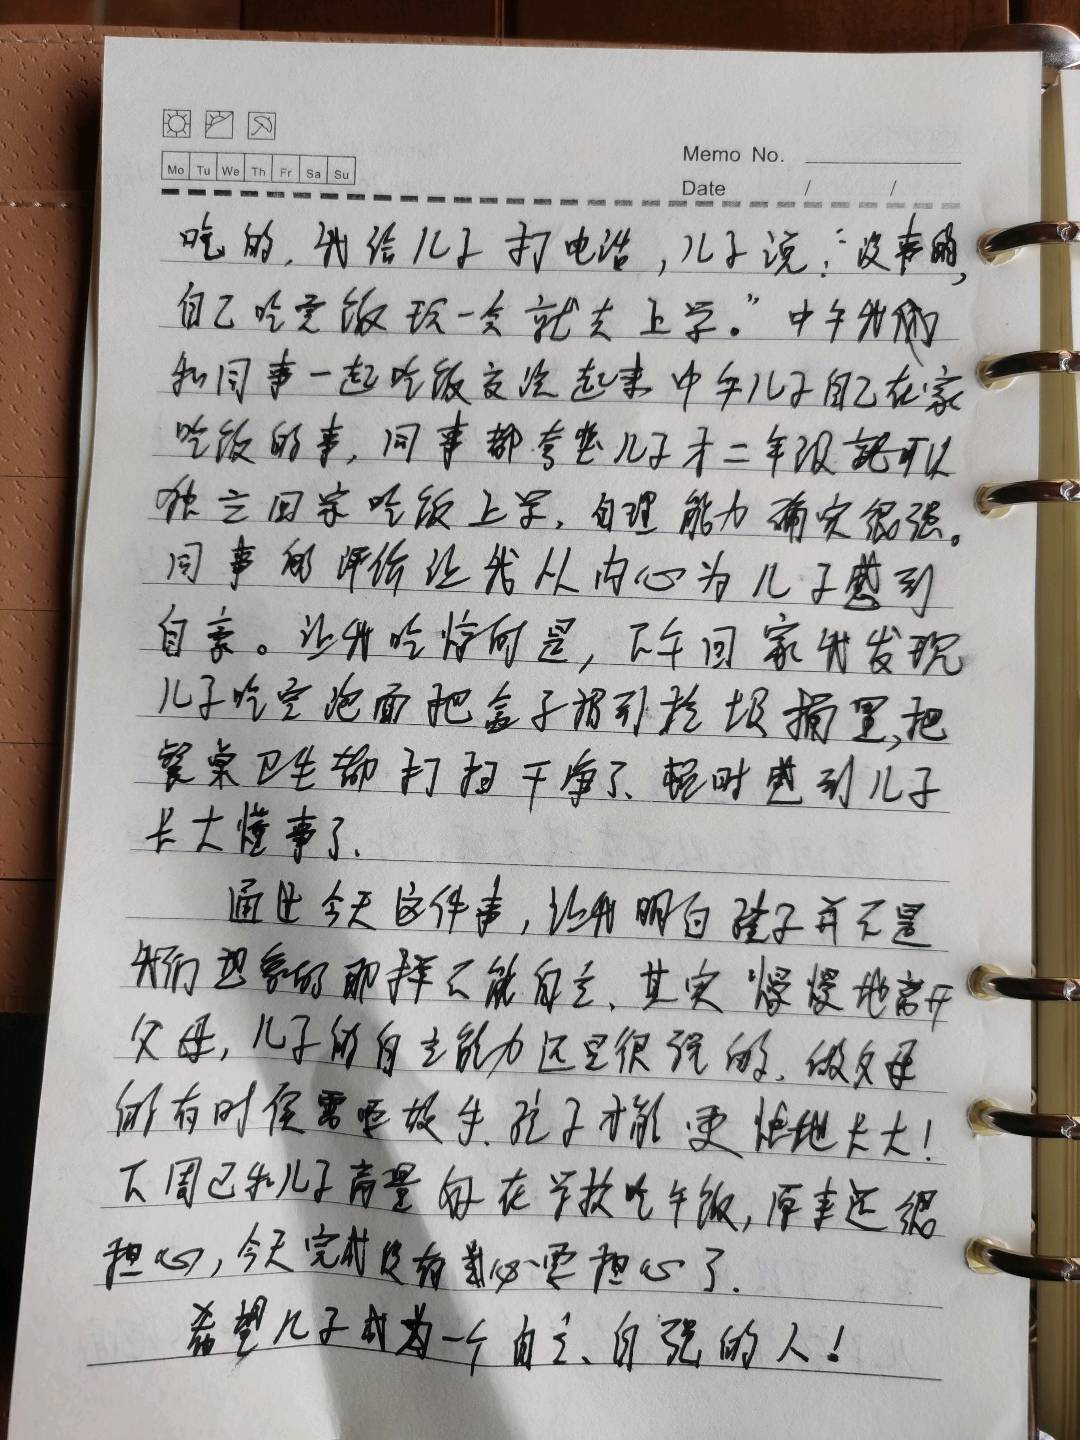 Mo Tu We Th Fr Sa Su
Memo No.
Date / /
吃的，我给儿子打电话，儿子说：“没事的，
自己吃完饭玩一会就去上学。”中午我
和同事一起吃饭交流起来中午儿子自己在家
吃饭的事，同事都夸赞儿子才二年级就可以
独立回家吃饭上学，自理能力确实很强。
同事的评价让我从内心为儿子感到
自豪。让我吃惊的是，下午回家我发现
儿子吃完泡面把盒子扔到垃圾桶里，把
餐桌卫生都打扫干净了、顿时感到儿子
长大懂事了.
通过今天这件事，让我明白孩子并不是
我们想象的那样不能自立、其实慢慢地离开
父母，儿子的自立能力还是很强的、做父母
的有时候需要放手、孩子才能更快地长大！
下周已和儿子商量好在学校吃午饭，原来还很
担心，今天完成没有必要担心了.
希望儿子成为一个自立、自强的人！